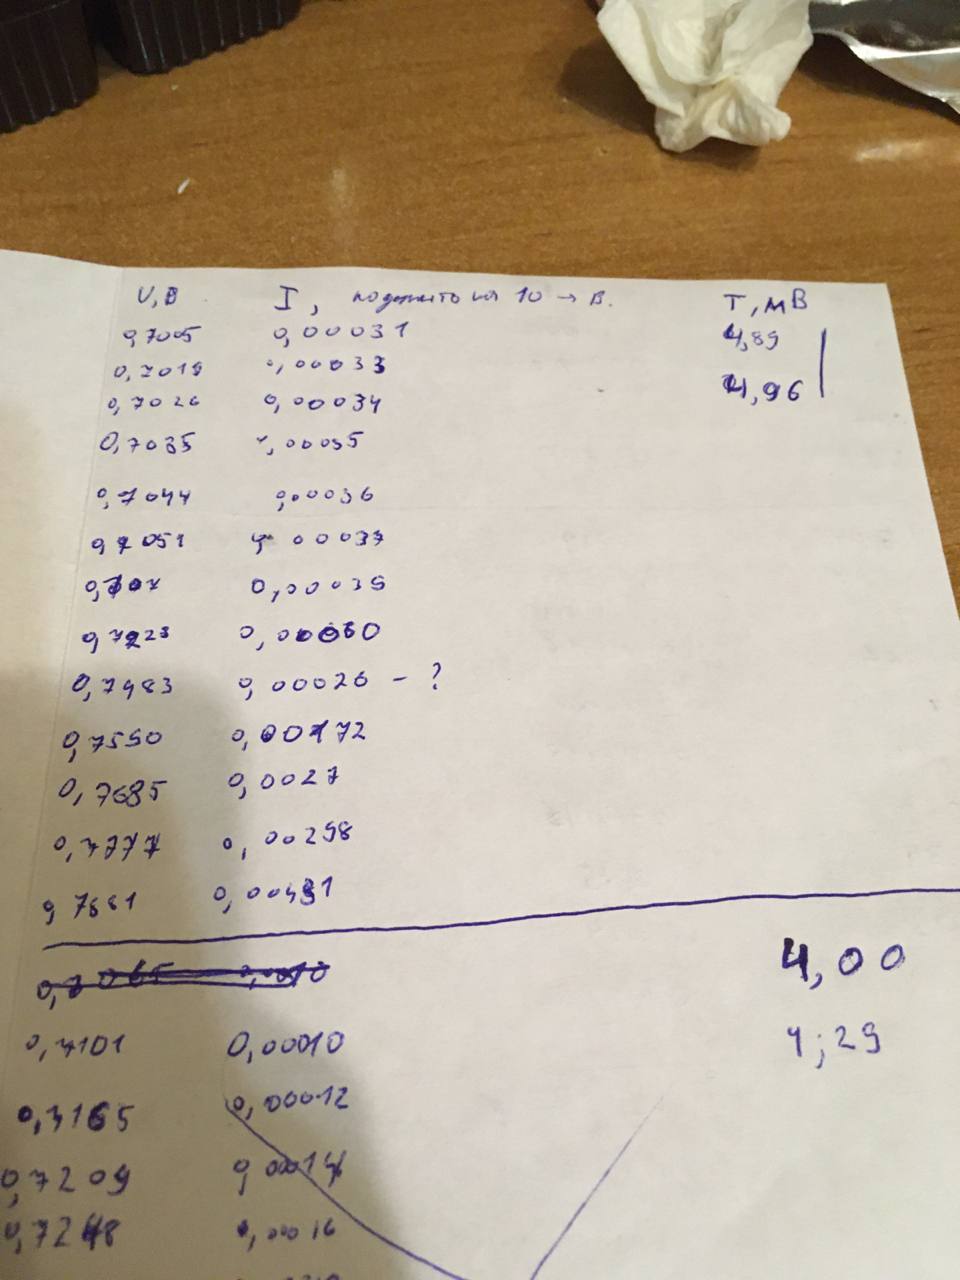 U, В I, поделить на 10 → В. T, мВ
0,7005 0,00031 4,89
0,7019 0,00033
0,7026 0,00034 4,96
0,7035 0,00035
0,7044 0,00036
0,7051 0,00037
0,707 0,00039
0,7223 0,00060
0,7483 0,00026 - ?
0,7550 0,00172
0,7685 0,0027
0,7777 0,00298
0,7881
0,7065 4,00
0,7101 0,00010 4,29
0,7165 0,00012
0,7209 0,00014
0,7248 0,00016